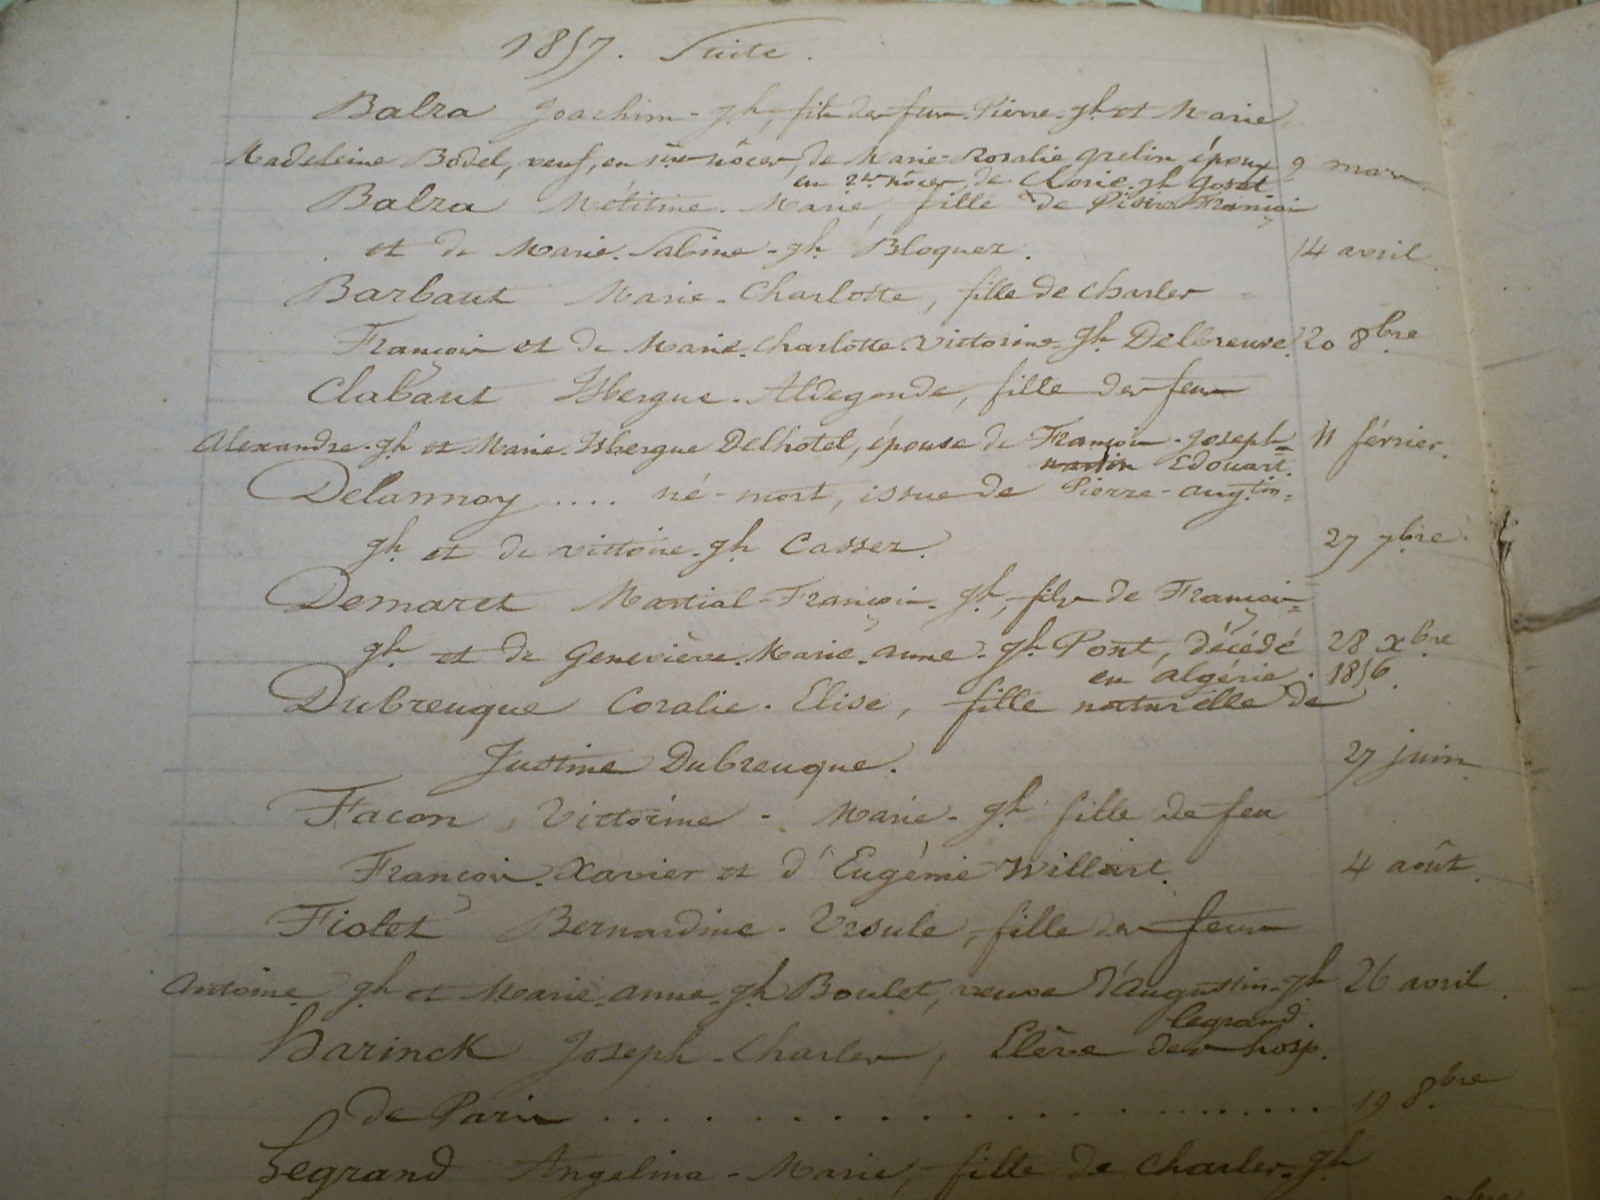 1857. Suite.
Balza Joachim-gh, fils des feux Pierre-gh et Marie
Madeleine Bodel, veuf, en 1ères nôces, de Marie-Rosalie Grelin époux 9 mars
en 2es nôces, de Clorie-gh Goset
Balza Mélitine-Marie, fille de Pierre François
et de Marie-Sabine-gh Bloquez. 14 avril.
Barbaut Marie-Charlotte, fille de Charles
François et de Marie-Charlotte-Victorine-gh Delbreuve. 20 8bre
Clabaut Isbergue-Aldegonde, fille des feux
Alexandre-gh et Marie-Isbergue Delhotel, épouse de François-Joseph= 11 février.
Edouart.
Delannoy .... né-mort, issue de Pierre-Augtin=
gh et de Victoire-gh Cassez. 27 7bre.
Demaret Martial-François-gh, fils de François=
gh et de Geneviève-Marie-Anne-gh Pont, décédé 28 xbre
en Algérie. 1856.
Dubreuque Coralie-Elise, fille naturelle de
Justine Dubreuque. 27 juin.
Facon Victorine-Marie-gh fille de feu
François-Xavier et d'Eugénie Willart. 4 août.
Fiolet Bernardine-Ursule, fille des feux
Antoine gh et Marie-Anne-gh Boulet, veuve d'Augustin-gh 26 avril.
Legrand.
Harinck Joseph-Charles, Elève des hosp.
de Paris .................... 19 8bre
Legrand Angelina-Marie, fille de Charles-gh